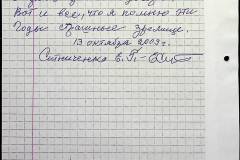 Вот и все, что я помню эти
годы страшные зрелище.
13 октября 2009г.
Ситниченко Е. П.